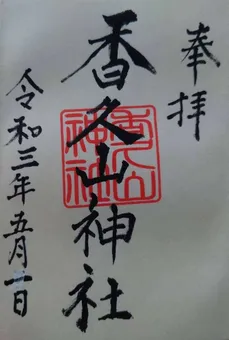 奉拝
香久山神社
令和三年五月二日